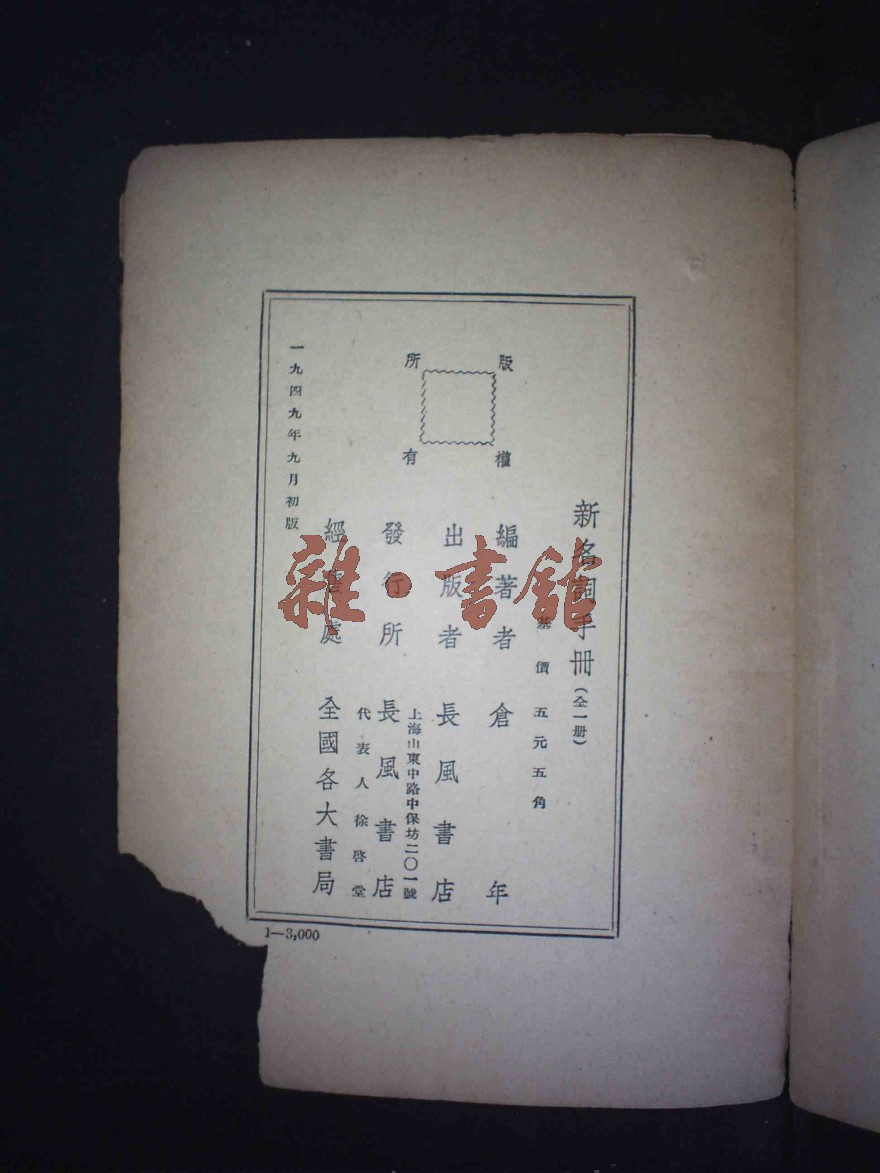 新名詞手冊(全一册)
基價五元五角
版權所有
編著者 倉年
出版者 長風書店
上海山東中路中保坊二〇一號
發行所 長風書店
代表人徐啓堂
經售處 全國各大書局
一九四九年九月初版
1—3,000
雜·書館